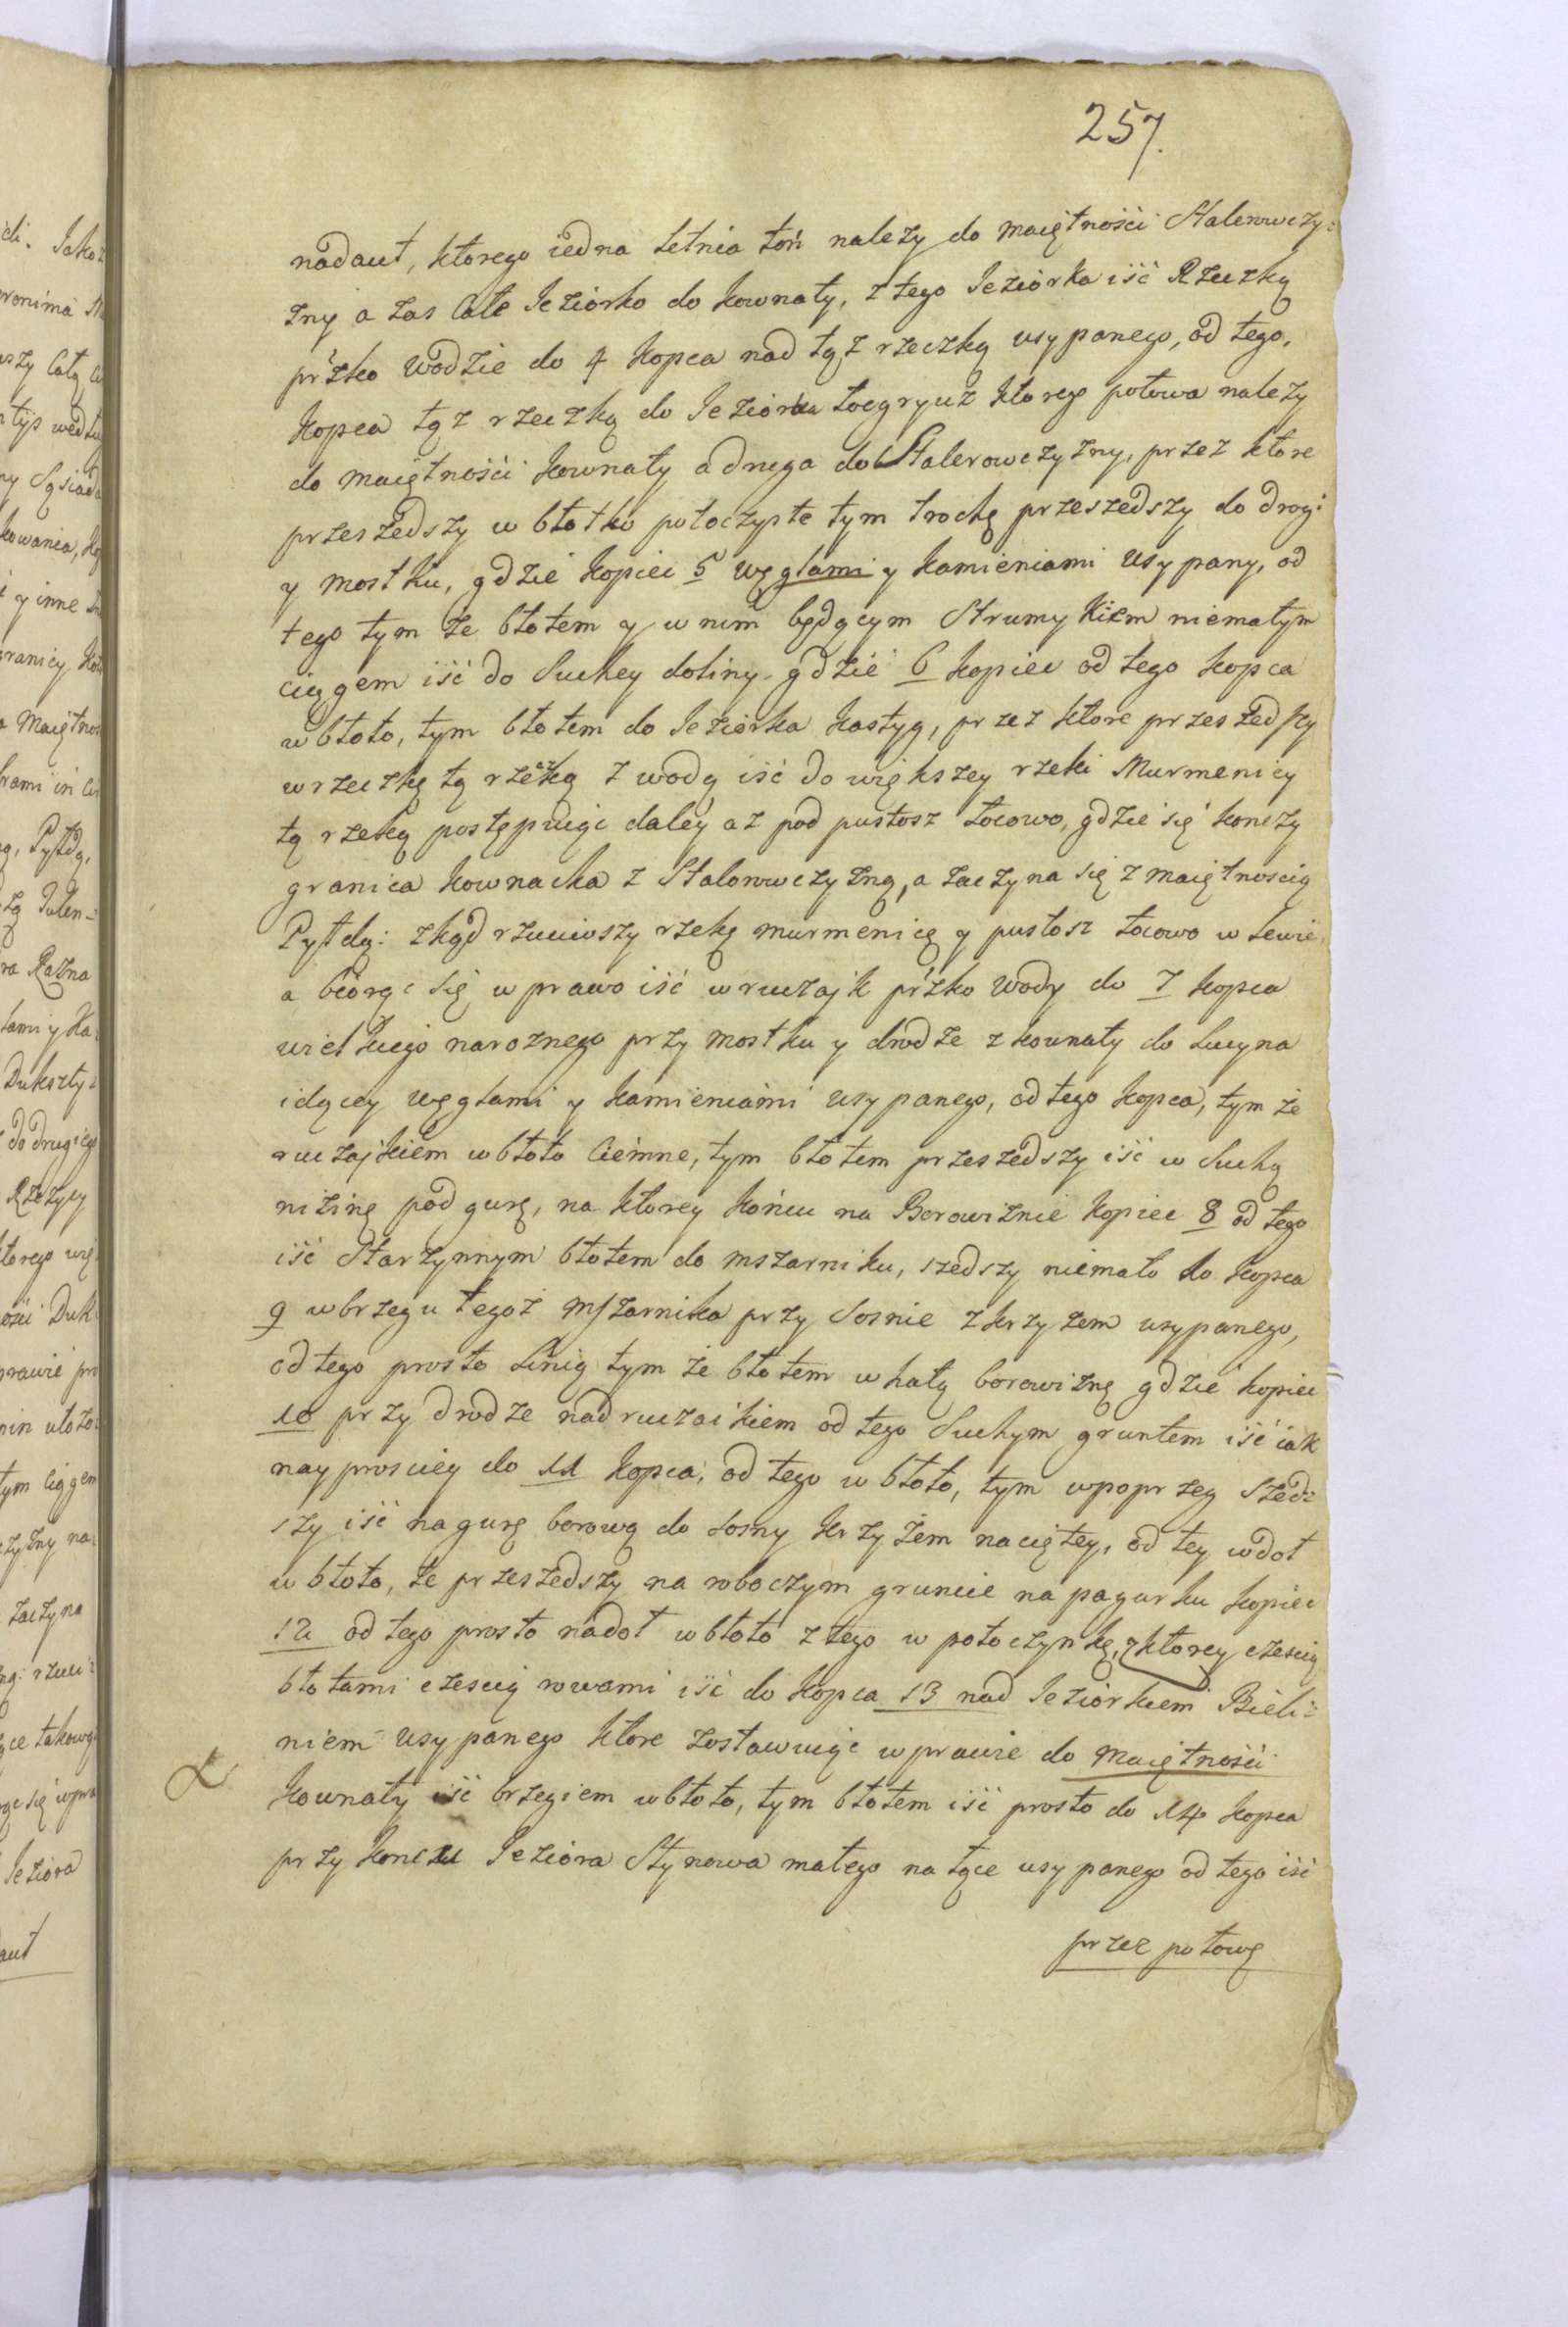 257.
nadaut, ktorego iedna letnia toń należy do maiętnośći Stalerowczy=
zny a zas Całe Ieziórko do Kownaty, z tego Ieziórka iść Rzeczką
przko wodzie do 4 Kopca nad tąż rzeczką usypanego, od tego,
Kopca tąż rzeczką do Ieziórka Łocgryuż ktorego połowa należy
do maiętnośći Kownaty a druga do Stalerowczyzny, przez ktore
przeszedszy w błotko potoczyste tym trochę przeszedszy do drogi
y mostku, gdzie Kopiec 5 węglami y kamieniami usypany, od
tego tym że błotem y w nim będącym Strumykiem niemałym
ciągem iść do Suchey doliny, gdzie 6 kopiec od tego kopca
w błoto, tym błotem do Ieziórka Kastyg, przez ktore przeszedszy
w rzeczkę tą rzeczką z wodą iść do większey rzeki Murmenicy
tą rzeką postępuiąc daley aż pod pustosz Łocowo, gdzie się konczy
granica Kownacka z Stalorowczyzną, a zaczyna się z maiętnoscią
Pyłdą: zkąd rzuciwszy rzekę murmenicę y pustosz Łocowo w lewie,
a biorąc się w prawo iść w ruczajk przko wody do 7 kopca
wielkiego narożnego przy mostku y drodze z kownaty do Lucyna
idącey węglami y kamieniami usypanego, od tego kopca, tym że
ruczajkiem w błoto Ciemne, tym błotem przeszedszy iść w Suchą
nizinę pod gurę, na ktorey końcu na Borowiznie kopiec 8 od tego
iść Starzynnym błotem do mszarniku, szedszy niemało do kopca
9 w brzegu tegoż mszarnika przy Sosnie z krzyżem usypanego,
od tego prosto Linią tym że błotem w hałą borowiznę gdzie kopiec
10 przy drodze nad ruczaikiem od tego Suchym gruntem iść iak
nayprosciey do 11 kopca, od tego w błoto, tym wpoprzeg szed=
szy iść na gurę borową do sosny krzyżem naciętey, od tey wdoł
w błoto, te przeszedszy na roboczym gruncie na pagurku kopiec
12 od tego prosto nadoł w błoto z tego w potoczynkę, z ktorey czescią
błotami czescią rowami iść do kopca 13 nad Ieziórkiem Bieli=
niem usypanego ktore zostawuiąc w prawie do maiętnośći
Kownaty iść brzegiem w błoto, tym błotem iść prosto do 14 kopca
przy koncu Ieziora Stynowa małego na łące usypanego od tego iść
przez połowę